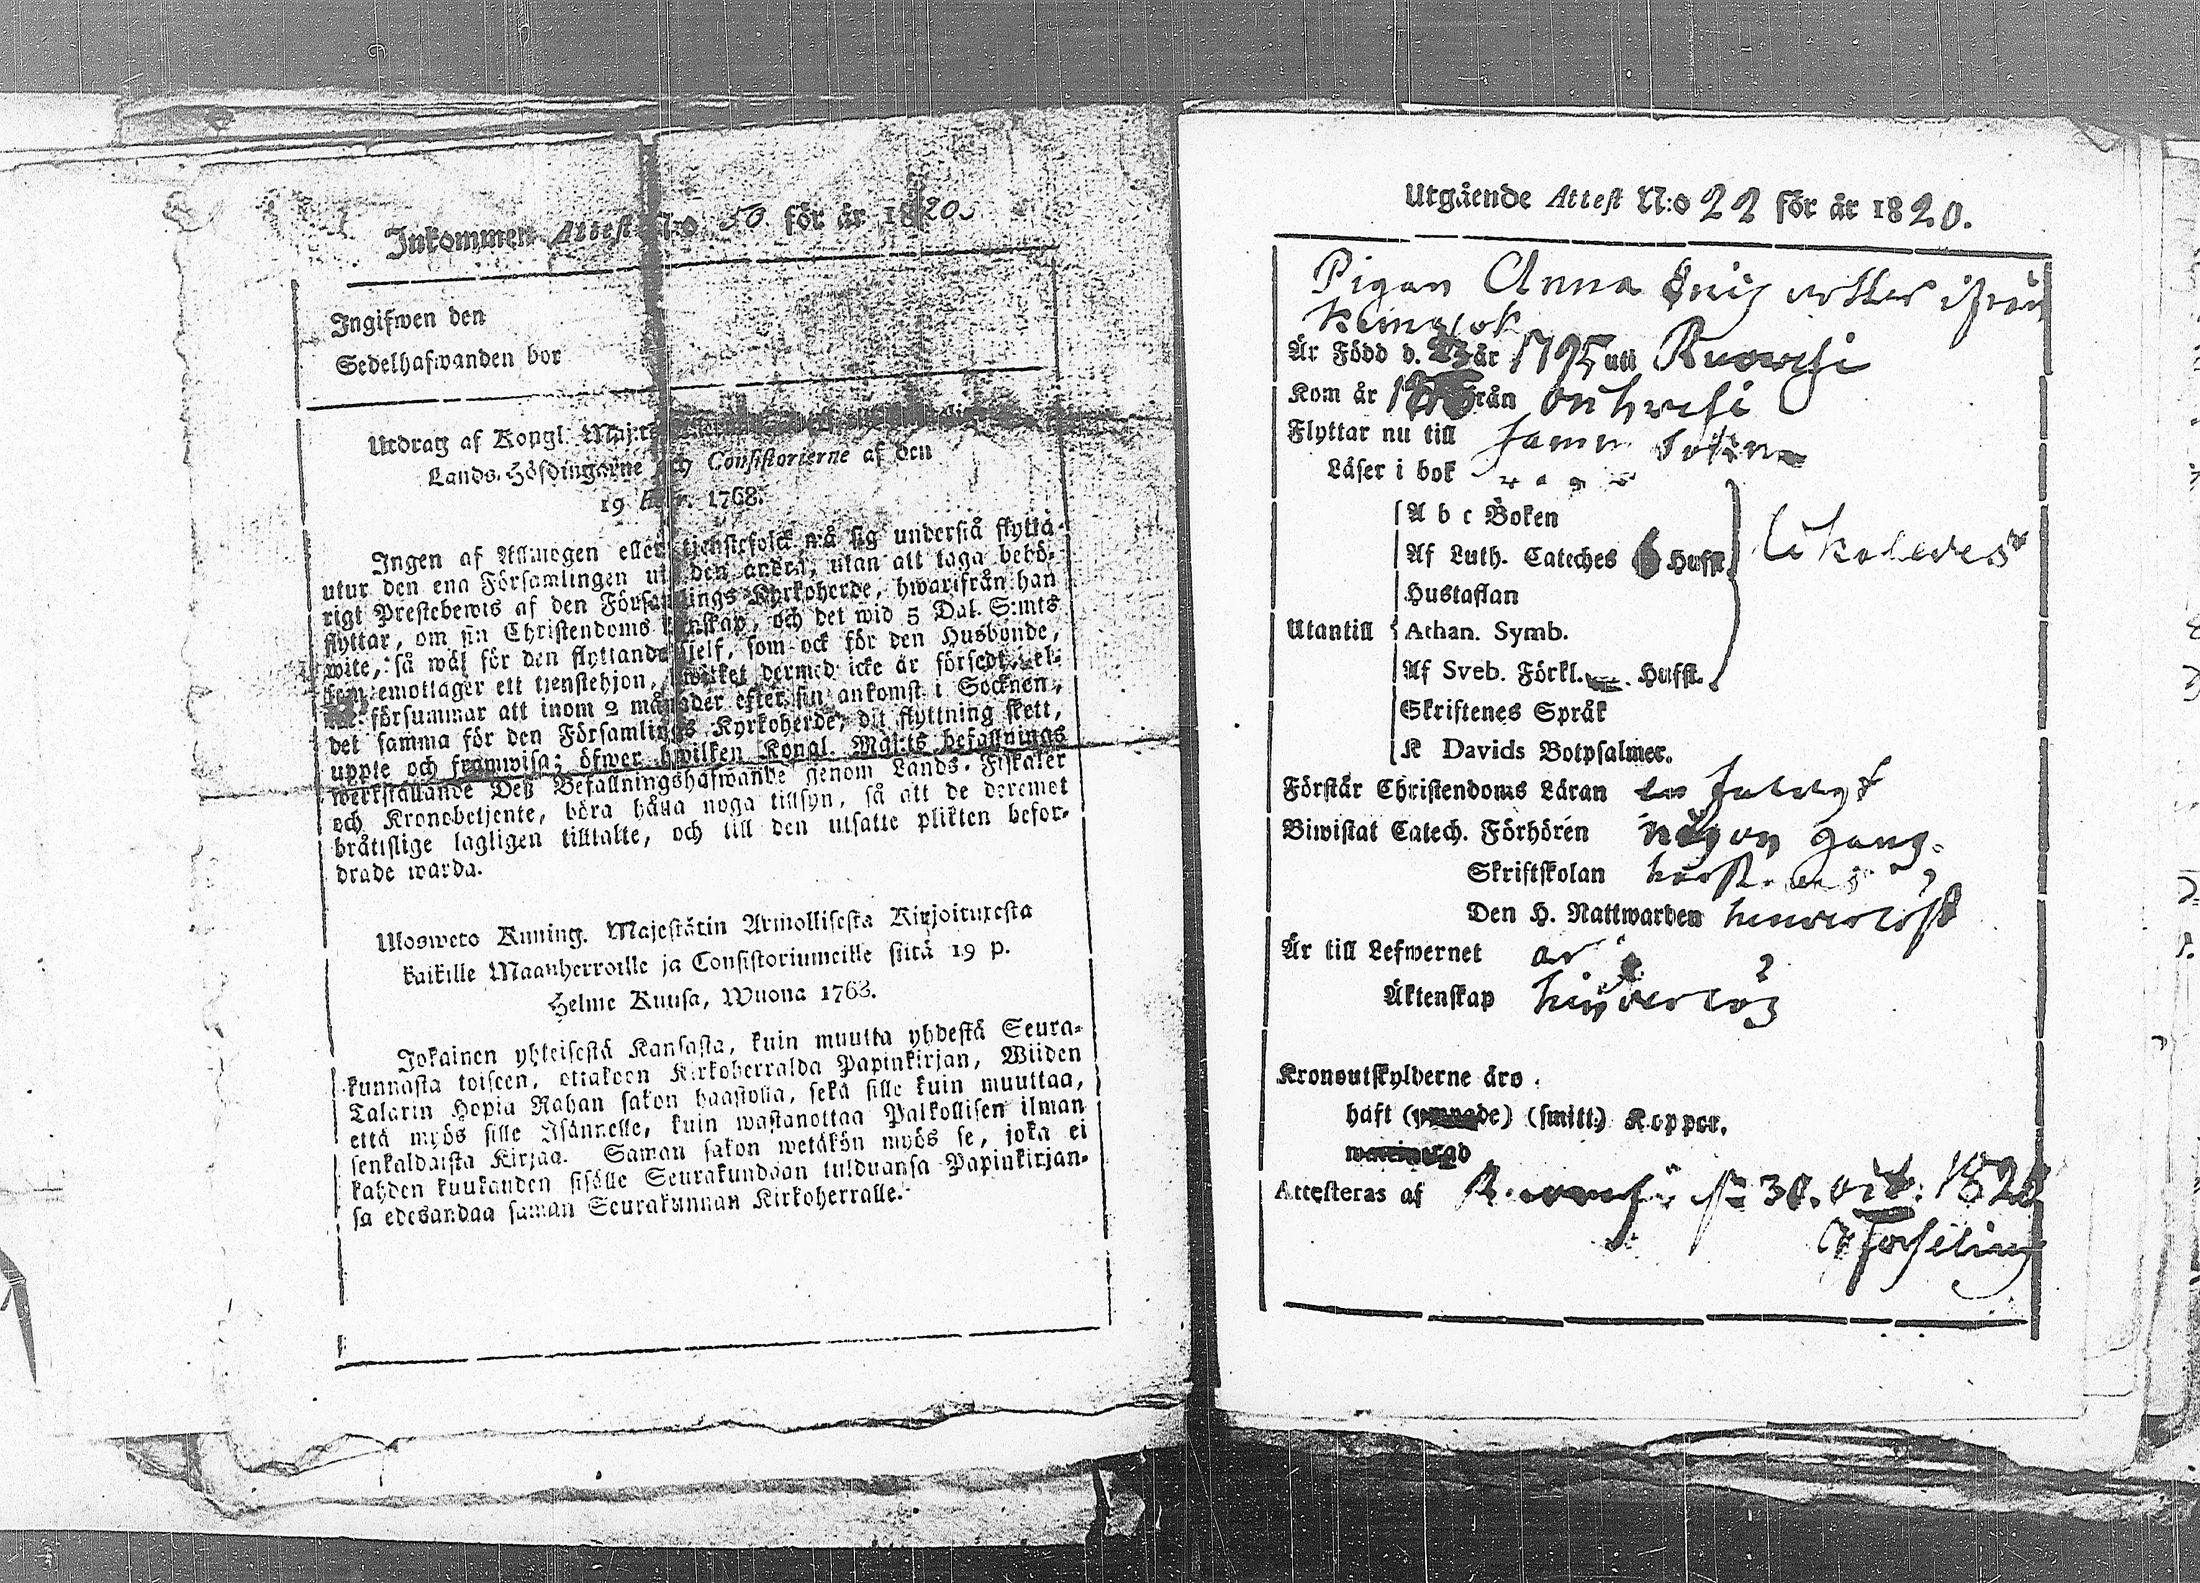 Inkommen Attest N:o 50 för år 1820.
Ingifwen den
Sedelhafwanden bor
Utdrag af Kongl. Maj:ts
Lands-Höfdingarne och Consistorierne af den
19 1768.
Ingen af Allmogen eller tjenstefolck må sig understå flytta
utur den ena Församlingen uti den andra, utan att taga behö-
rigt Prestebewis af den Församlings Kyrkoherde, hwarifrån han
flyttar, om sin Christendoms kunskap, och det wid 5 Dal. S:mts
wite, så wäl för den flyttande sjelf, som ock för den Husbonde,
som emottager ett tjenstehjon, hwilket dermed icke är försedt, el-
ler försummar att inom 2 månader efter sin ankomst i Socknen,
det samma för den Församlings Kyrkoherde, dit flyttning skett,
uppte och framwisa; öfwer hwilken Kongl. Maj:ts befallnings
werkställande Deß Befallningshafwande genom Lands-Fiskaler
och Kronobetjente, böra hålla noga tillsyn, så att de deremot
bråtislige lagligen tilltalte, och till den utsatte plikten befor-
drade warda.
Ulosweto Kuning. Majestätin Armollisesta Kirjoituxesta
kaikille Maanherroille ja Consistoriumeille siitä 19 p.
Helme Kuusa, Wuona 1768.
Jokainen yhteisestä Kansasta, kuin muutta yhdestä Seura-
kunnasta toiseen, ottakoon Kirkoherralda Papinkirjan, Wiiden
Talarin Hopia Rahan sakon haastolla, sekä sille kuin muuttaa,
että myös sille Isännelle, kuin wastanottaa Palkollisen ilman
senkaldaista Kirjaa. Saman sakon wetäkön myös se, joka ei
kahden kuukauden sisälle Seurakundaan tulduansa Papinkirjan-
sa edesandaa saman Seurakunnan Kirkoherralle.
Utgående Attest N:o 22 för år 1820.
Pigan Anna
Är Född d. 23 år 1795 uti Ruovesi
Kom år från
Flyttar nu till
Läser i bok
A b c Boken
Af Luth. Cateches 6 Hufst.
Hustaflan
Utantill Athan. Symb.
Af Sveb. Förkl. Hufst.
Skriftenes Språk
K Davids Botpsalmer.
Förstår Christendoms Läran
Biwistat Catech. Förhören någon gång.
Skriftskolan
Den H. Nattwarden
Är till Lefwernet
Äktenskap hinderlös
Kronoutskylderne äro
haft (ympade) (smitt) Koppor.
Attesteras af Ruovesi 30. Oct. 1820